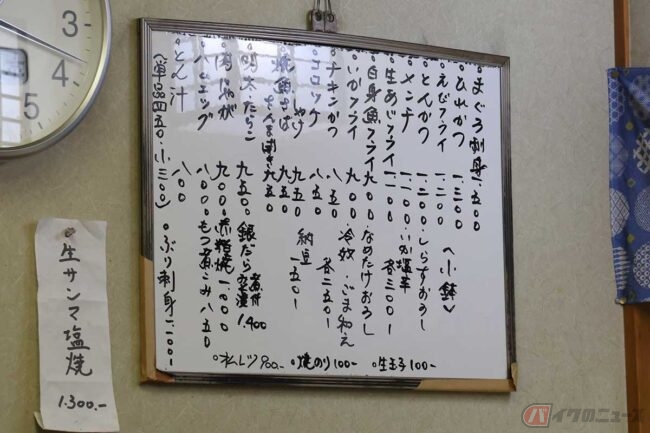 まぐろ刺身 一.五〇〇
ひれかつ 一.三〇〇
えびフライ 一.二〇〇
とんかつ 一.二〇〇
メンチ 一.一〇〇
生あじフライ 一.一〇〇
自身魚フライ 九〇〇
いかフライ 九〇〇
チキンかつ 八五〇
コロッケ 八五〇
しゃけ 九五〇
焼魚さば 九五〇
さんま開き 九五〇
明太・たらこ 九五〇
肉じゃが 九〇〇
ハムエッグ 八〇〇
とん汁 八〇〇
(単品四五〇・小三〇〇)
〈小鉢〉
しらすおろし
いか塩辛
各三〇〇-
なめたけおろし
冷奴・ごまわえ
各二五〇-
納豆
一五〇-
銀だら
煮付
1.400
赤粕焼 一.〇〇〇
もつ煮こみ 八五〇
○ぶり刺身 一.一〇〇-
○オムレツ 900.-
○焼のり 100-
○生玉子 100-
○生サンマ塩焼
1.300.-
3
4
5
バイクのニュース